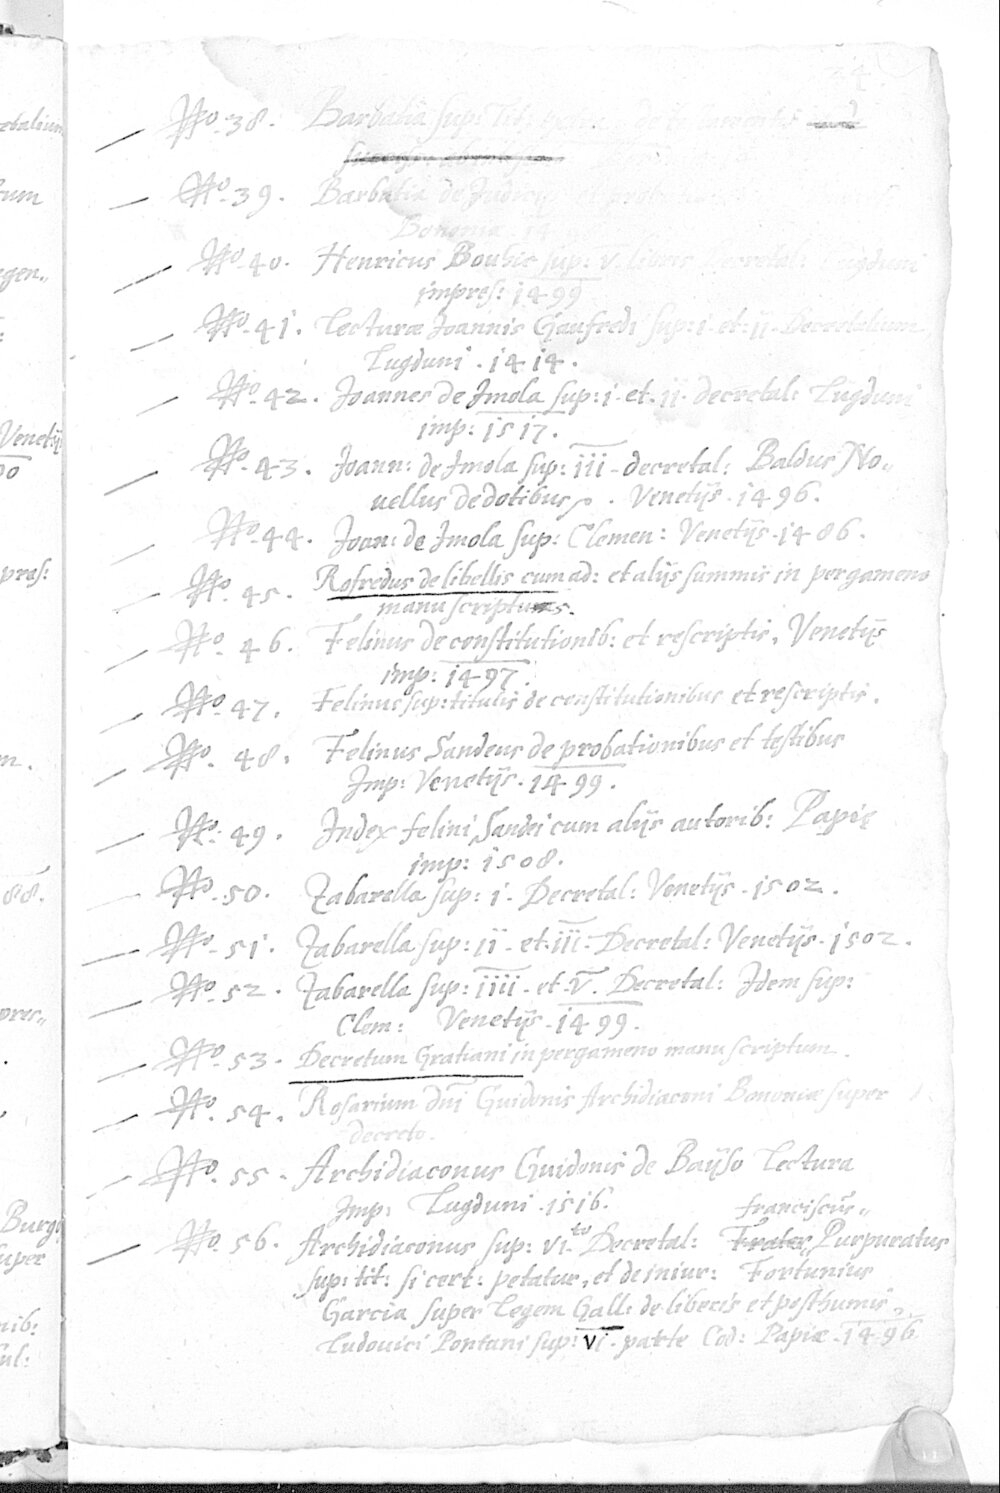 No. 38. Barbatia sup: tit:
No. 39. Barbatia de Judicijs et
Bononia. 14
No. 40. Henricus Bouhic sup: v. libris Decretal: Lugduni
impres: 1499
No. 41. Lecturæ Joannis Gaufredi sup: i. et. ii. Decretalium
Lugduni. 1414.
No. 42. Joannes de Jmola sup: i. et. ii. decretal: Lugduni
imp: 1517.
No. 43. Joann: de Jmola sup: iii. decretal: Baldus No„
uellus de dotibus. Venetijs. 1496.
No. 44. Joan: de Jmola sup: Clemen: Venetijs. 1486.
No. 45. Rofredus de libellis cum ad: et alijs summis in pergameno
manu scriptus.
No. 46. Felinus de constitutionib: et rescriptis, Venetijs
imp: 1497.
No. 47. Felinus sup: titulis de constitutionibus et rescriptis.
No. 48. Felinus Sandeus de probationibus et testibus
Jmp: Venetijs. 1499.
No. 49. Index felini Sandei cum alijs autorib: Papię
imp: 1508.
No. 50. Zabarella sup: i. Decretal: Venetijs. 1502.
No. 51. Zabarella sup: ii. et. iii. Decretal: Venetijs. 1502.
No. 52. Zabarella sup: iiii. et. v. Decretal: Jdem sup:
Clem: Venetijs. 1499.
No. 53. Decretum Gratiani in pergameno manu scriptum.
No. 54. Rosarium dni Guidonis Archidiaconi Bononiæ super
decreto.
No. 55. Archidiaconus Guidonis de Baijso Lectura
Jmp: Lugduni. 1516.
franciscus„
No. 56. Archidiaconus sup: vi.to Decretal: Frater Purpuratus
sup: tit: si cert: petatur, et de iniur: Fortunius
Garcia super Legem Gall: de liberis et posthumis,
Ludouici Pontani sup: vi. parte Cod: Papiæ. 1496